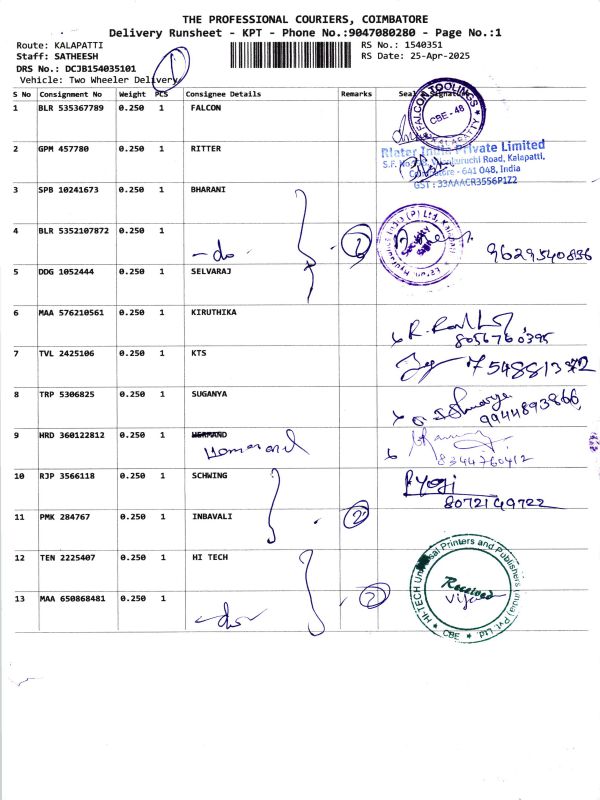 THE PROFESSIONAL COURIERS, COIMBATORE
Delivery Runsheet - KPT - Phone No.:9047080280 - Page No.:1
Route: KALAPATTI
Staff: SATHEESH
DRS No.: DCJB154035101
Vehicle: Two Wheeler Delivery
RS No.: 1540351
RS Date: 25-Apr-2025
1
S No Consignment No Weight PCS Consignee Details Remarks
1 BLR 535367789 0.250 1 FALCON
FALCON TOOLINGS
CBE - 48
2 GPM 457780 0.250 1 RITTER
India Private Limited
Road, Kalapatti,
641 048, India
GST : 33AAACR3556P1Z2
3 SPB 10241673 0.250 1 BHARANI
4 BLR 5352107872 0.250 1 - do -
India (P) Ltd,
Security
9629540836
5 DDG 1052444 0.250 1 SELVARAJ
6 MAA 576210561 0.250 1 KIRUTHIKA
8056760395
7 TVL 2425106 0.250 1 KTS
754881372
8 TRP 5306825 0.250 1 SUGANYA
9944893866
9 HRD 360122812 0.250 1
8344760412
10 RJP 3566118 0.250 1 SCHWING
Yogi
8072149722
11 PMK 284767 0.250 1 INBAVALI 2
12 TEN 2225407 0.250 1 HI TECH
13 MAA 650868481 0.250 1 - do - 2
HI-TECH Universal Printers and Publishers (India) Pvt. Ltd.
CBE
Received